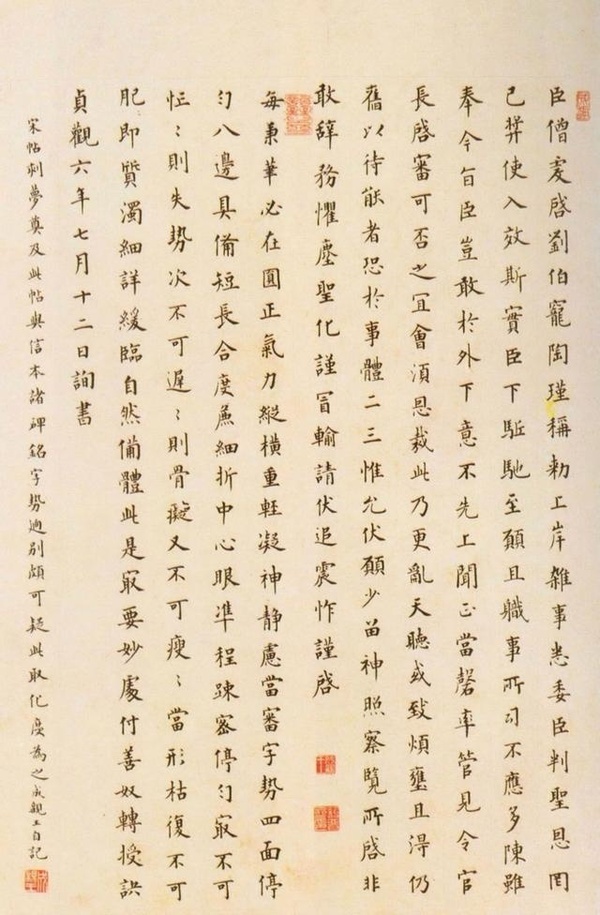 臣僧虔啓劉伯寵陶瑾稱勑工岸雜事悉委臣判聖恩罔
已奬使入效斯實臣下駈馳至願且職事所司不應多陳雖
奉今旨臣豈敢於外下意不先上聞正當罄率管見令官
長啓審可否之冝會湏恩裁此乃更亂天聽或致煩壅且淂仍
舊以待能者恐於事體二三惟允伏願少留神照察覽所啓非
敢辞務懼塵聖化謹冒輸請伏追震怍謹啓
每秉筆必在圓正氣力縱横重輊凝神静慮當審字勢四面停
勻八邊具備短長合度麄細折中心眼準程踈密停勻冣不可
忙〻則失勢次不可遲〻則骨癡又不可瘦〻當形枯復不可
肥即質濁細詳緩臨自然備體此是冣要妙處付善奴轉授訣
貞觀六年七月十二日詢書
宋帖刻夢奠及此帖與信本諸碑銘字勢迥别頗可疑此取化度為之成親王自記